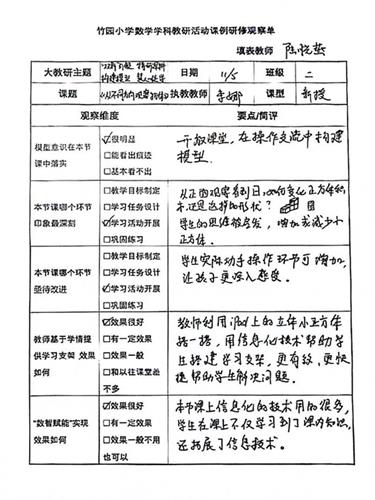 竹园小学数学学科教研活动课例研修观察单
填表教师
大教研主题
构建模型
日期 11/5 班级 二
课题 《从不同方向观察物体》 执教教师 李娜 课型 新授
观察维度 要点/简评
模型意识在本节课中落实
☑很明显
□能看出痕迹
□基本看不出
开放课堂,在操作交流中构建
模型.
本节课哪个环节印象最深刻
□教学目标制定
□学习任务设计
☑学习活动开展
□巩固练习
从正面观察看到日,如何变化正方体积
木,还是这样的形状?
学生的思维被启发,增加或减少小
正方体.
本节课哪个环节亟待改进
□教学目标制定
□学习任务设计
☑学习活动开展
□巩固练习
学生实际动手操作环节可增加,
让孩子更深入感受.
教师基于学情提供学习支架 效果如何
☑效果很好
□有一定效果
□效果一般
□和以往课堂差不多
教师利用iPad上的立体小正方体
搭一搭,用信息化技术帮助学
生搭建学习支架,更有效,更快
捷帮助学生解决问题.
“数智赋能”实现效果如何
☑效果很好
□有一定效果
□效果一般不用也可以
本节课上信息化的技术用的很多,
学生在课上不仅学习到了课内知识,
还拓展了信息技术.